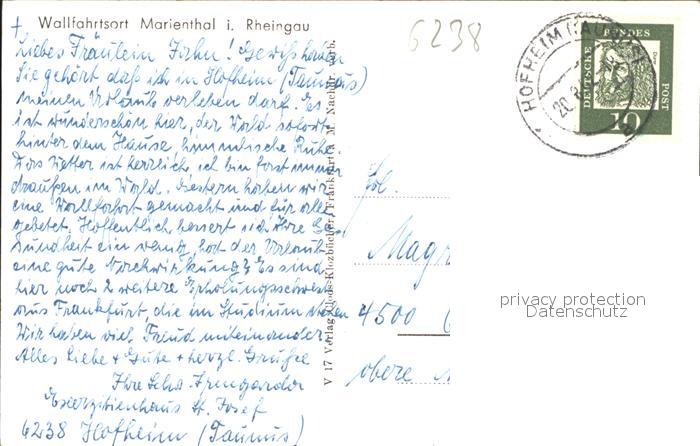 Wallfahrtsort Marienthal i. Rheingau
Liebes Fräulein Jahn! Gewiß haben
Sie gehört daß ich in Hofheim (Taunus)
meinen Urlaub verleben darf. Es
ist wunderschön hier, der Wald sofort
hinter dem Hause, himmlische Ruhe.
Das Wetter ist herrlich, ich bin fast immer
draußen im Wald. Gestern haben wir
eine Wallfahrt gemacht und für alle
gebetet. Hoffentlich bessert sich Ihre Ge-
sundheit ein wenig, hat der Urlaub
eine gute Nachwirkung? Es sind
hier noch 2 weitere Erholungsschwest.
aus Frankfurt, die im Studium stehen
Wir haben viel Freud miteinander
Alles Liebe + Gute + herzl. Grüße
Ihre Schw. Irmgarda
Exerzitienhaus St. Josef
6238 Hofheim (Taunus)
V 17 Verlag Frankfurt a. M. Nachdr. verb.
6238
HOFHEIM (TAUNUS)
20
DEUTSCHE BUNDESPOST
10
4500
obere
privacy protection
Datenschutz